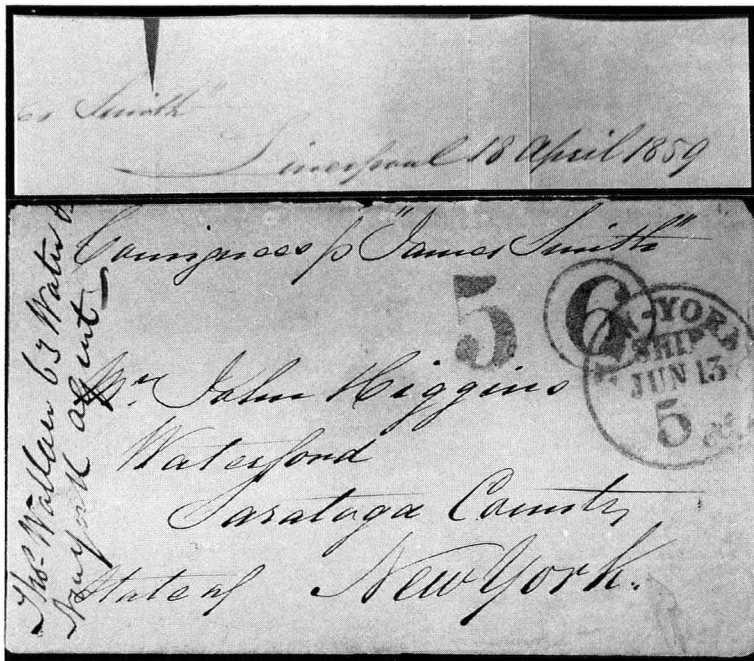 es Smith"
Liverpool 18 April 1859
Consignees p "James Smith"
5
6
NEW-YORK
SHIP
JUN 13
5 cts
Mr John Higgins
Waterford
Saratoga County
State of New York.
Thos Wallace 63 Water
New york agent